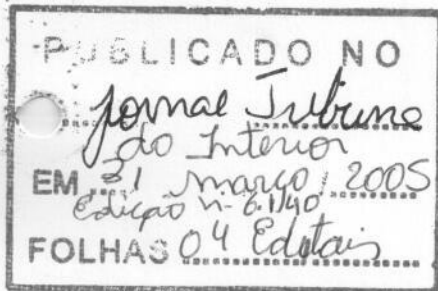 PUBLICADO NO
Jornal Tribuna
do Interior
EM 31 março / 2005
Edição n- 6.1140
FOLHAS 04 Editais